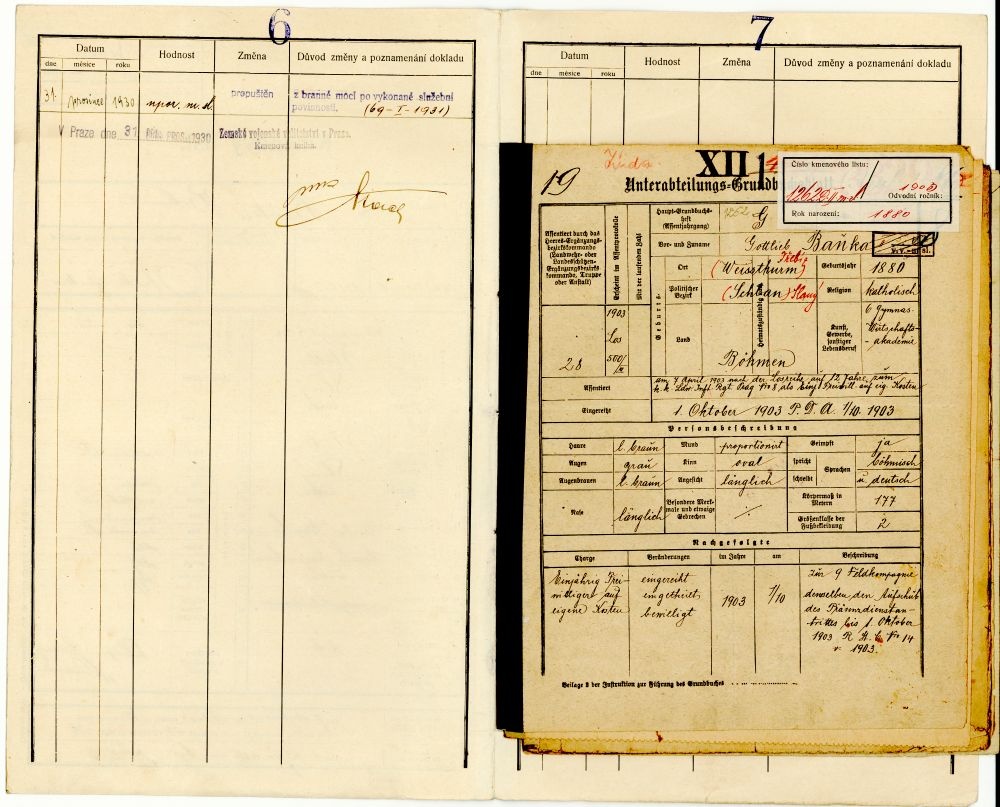 6
Datum
Hodnost
Změna
Důvod změny a poznamenání dokladu
dne
měsíce
roku
31.
prosince
1930
npor. m. sl.
propuštěn
z branné moci po vykonané služební
povinnosti. (69-I-1931)
V Praze dne 31. PROS. 1930
Zemské vojenské velitelství v Praze.
Kmenová kniha.
7
Datum
Hodnost
Změna
Důvod změny a poznamenání dokladu
dne
měsíce
roku
19
XII
Unterabteilungs-Grundb
Číslo kmenového listu:
1903
Odvodní ročník:
Rok narození:
1880
Assentiert durch das
Heeres-Ergänzungs-
bezirkskommando
(Landwehr- oder
Landesschützen-
Ergänzungsbezirks-
kommando, Truppe
oder Anstalt)
Erscheint im Assentprotokolle
Mit der laufenden Zahl
28
1903
Los
500/
Haupt-Grundbuchs-
heft
(Assentjahrgang)
1262
G
Vor- und Zuname
Gottlieb Baňka
Geburts-
Ort
(Weiszthurm)
Třebíz
Geburtsjahr
1880
Politischer
Bezirk
(Schlan) Slaný
Religion
katholisch
Heimatszuständig
Land
Böhmen
Kunst,
Gewerbe,
sonstiger
Lebensberuf
6 Gymnas.
Wirtschafts-
-akademie
Assentiert
am 7 April 1903 nach der Losreihe auf 12 Jahre zum
k. k. Ldw. Inft. Rgt. Prag Nr 8 als Einj. Freiwill. auf eig. Kosten
Eingereiht
1. Oktober 1903 P. D. A. 1/10. 1903
Personsbeschreibung
Haare
l. braun
Mund
proportionirt
Geimpft
ja
Augen
grau
Kinn
oval
spricht
Sprachen
böhmisch
Augenbrauen
l. braun
Angesicht
länglich
schreibt
u. deutsch
Nase
länglich
Besondere Merk-
male und etwaige
Gebrechen
Körpermaß in
Metern
177
Größenklasse der
Fußbekleidung
2
Nachgefolgte
Charge
Veränderungen
im Jahre
am
Beschreibung
Einjährig Frei-
williger auf
eigene Kosten
eingereiht
eingetheilt
bewilligt
1903
1/10
zur 9 Feldkompagnie
demselben den Aufschub
des Präsenzdienstan-
trittes bis 1. Oktober
1903 R. K. C. Nr 14
v. 1903.
Beilage 8 der Instruktion zur Führung des Grundbuches